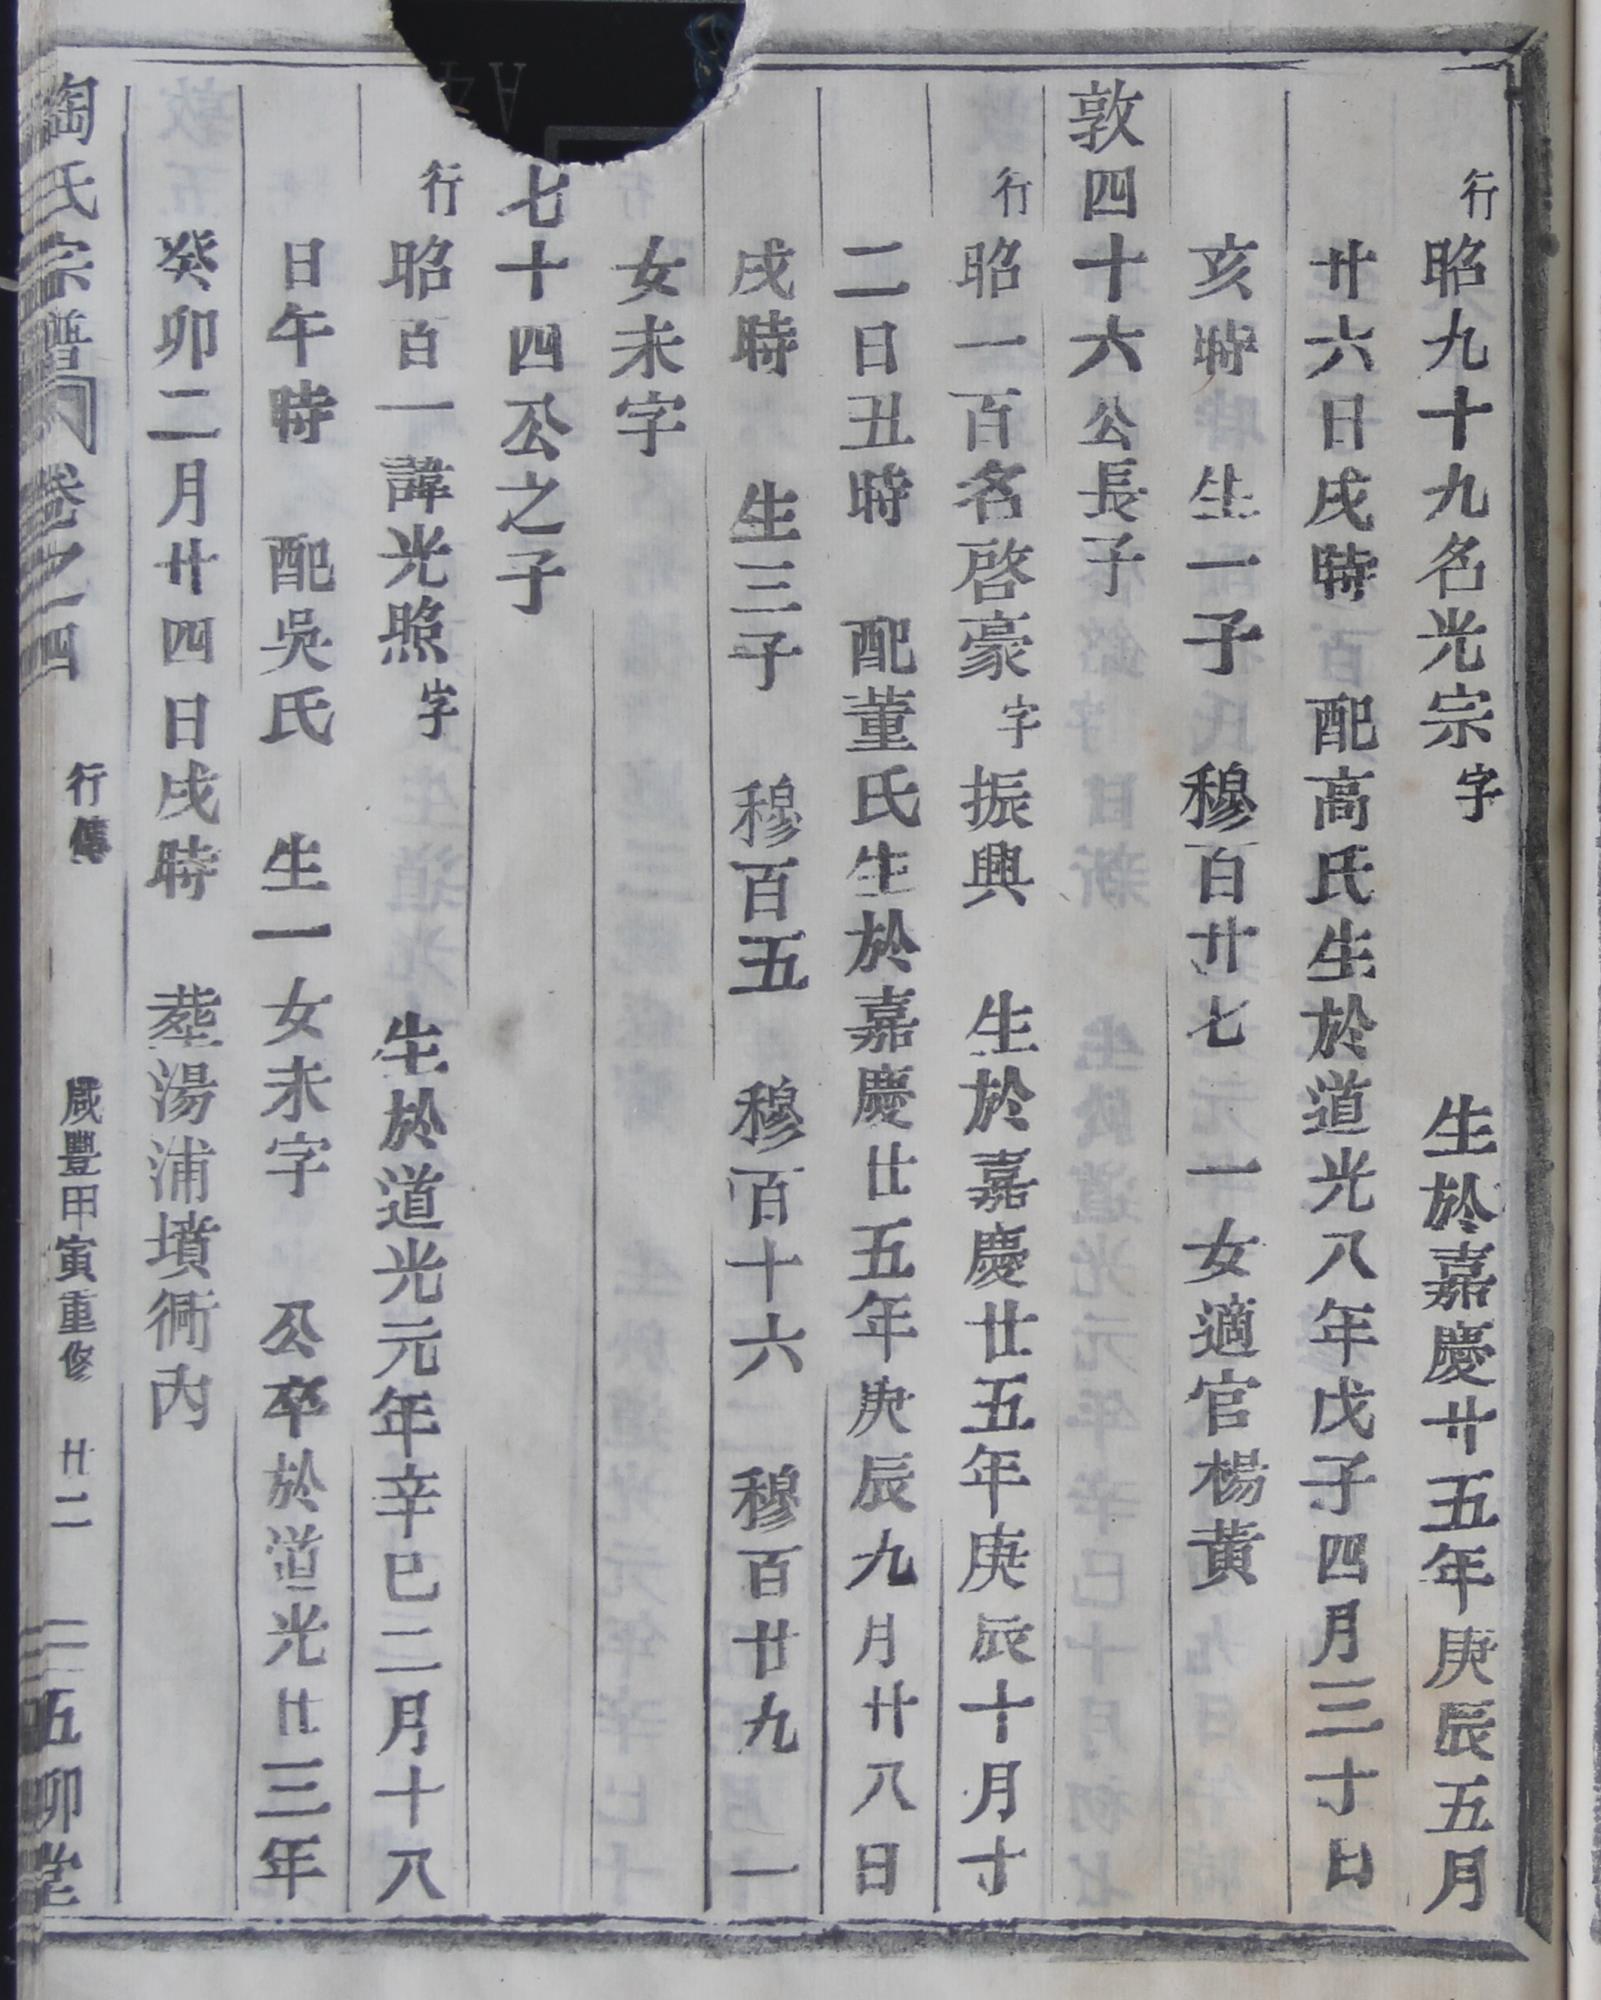 行昭九十九名光宗字 生於嘉慶廿五年庚辰五月
廿六日戌時 配高氏生於道光八年戊子四月三十日
亥時 生一子 穆百廿七 一女適官楊黃
敦四十六公長子
行昭一百名啓豪字振興 生於嘉慶廿五年庚辰十月十
二日丑時 配董氏生於嘉慶廿五年庚辰九月廿八日
戌時 生三子 穆百五 穆百十六 穆百廿九 一
女未字
七十四公之子
行昭百一諱光照字 生於道光元年辛巳二月十八
日午時 配吳氏 生一女未字 公卒於道光廿三年
癸卯二月廿四日戌時 塟湯浦墳衕內
陶氏宗譜 卷之 四 行傳 咸豐甲寅重修 廿二 五柳堂
A4